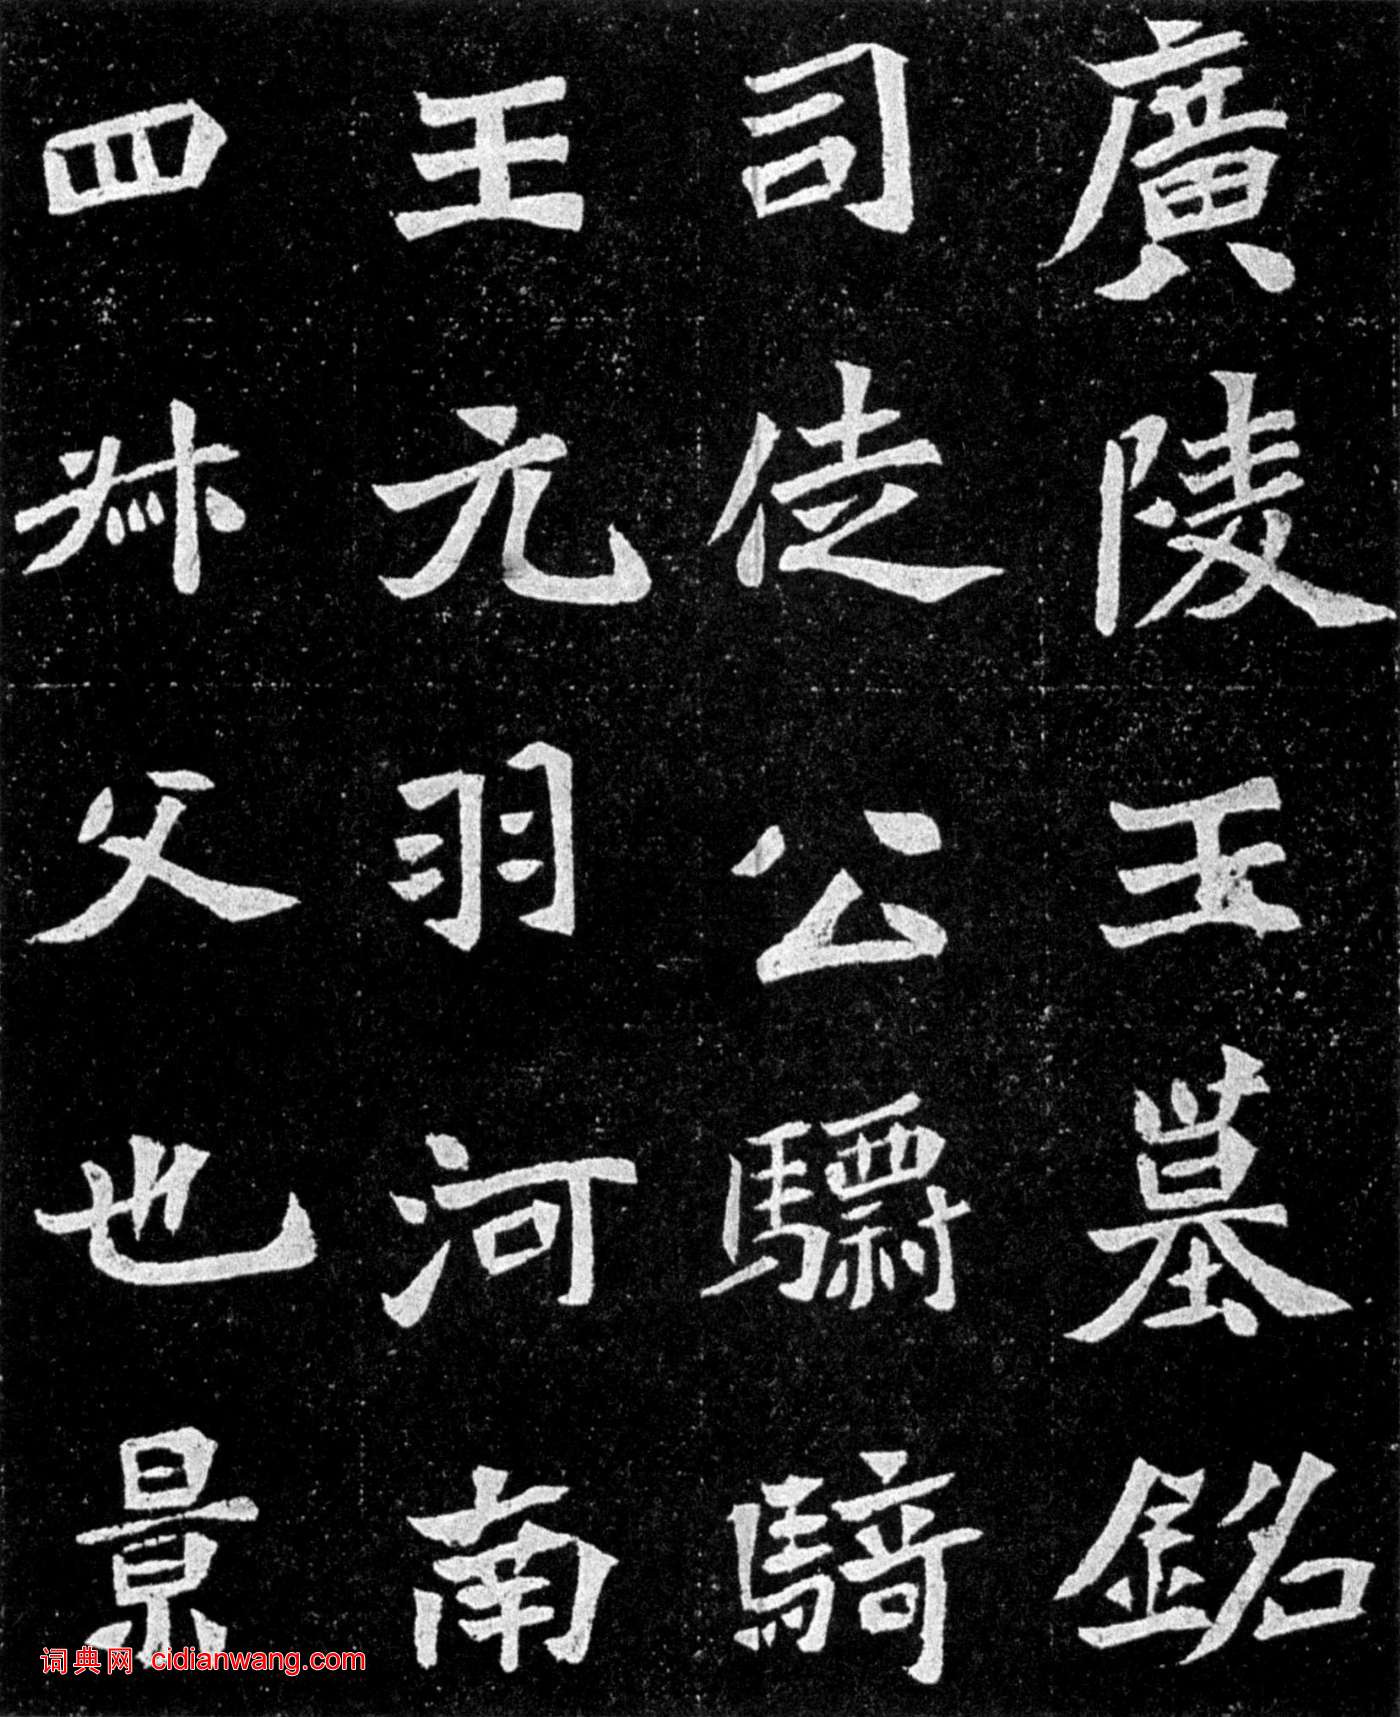 廣陵王墓銘
司徒公驃騎
王元羽河南
四叔父也景
词典网 cidianwang.com